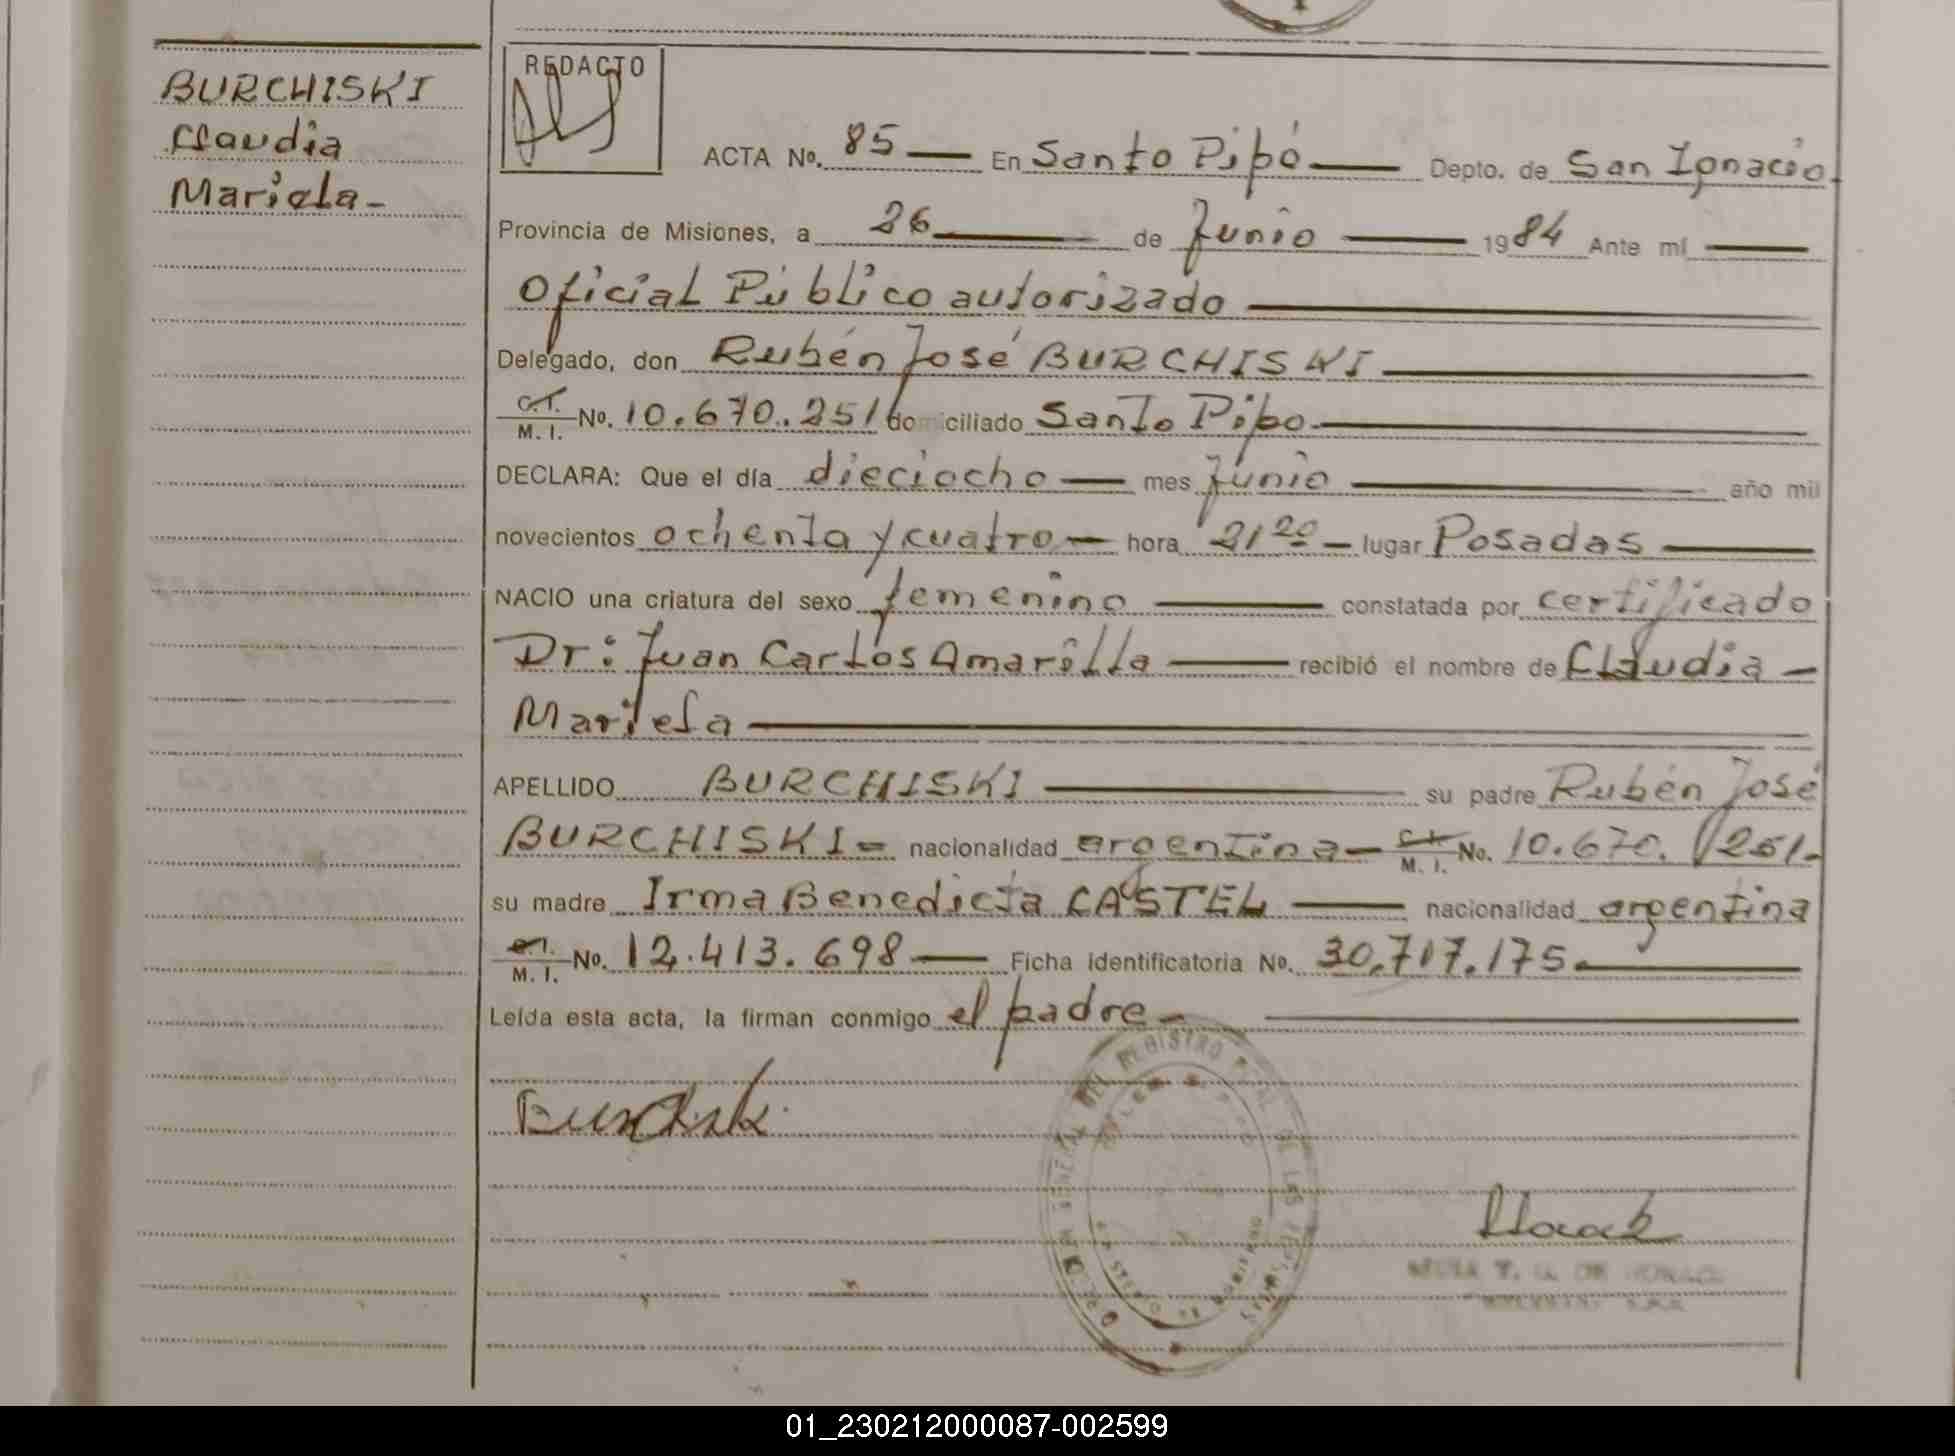 BURCHISKI
Claudia
Mariela-
REDACTO
ACTA No. 85 — En Santo Pipó — Depto. de San Ignacio
Provincia de Misiones, a 26 — de Junio — 1984 Ante mí —
Oficial Público autorizado —
Delegado, don Rubén José BURCHISKI —
C.I. M. I. No. 10.670.251 domiciliado Santo Pipo —
DECLARA: Que el día dieciocho — mes Junio — año mil
novecientos ochenta y cuatro — hora 21 20 — lugar Posadas —
NACIO una criatura del sexo femenino — constatada por certificado
Dr: Juan Carlos Amarilla — recibió el nombre de Claudia —
Mariela —
APELLIDO BURCHISKI — su padre Rubén José
BURCHISKI = nacionalidad argentina — C.I. M. I. No. 10.670.251.
su madre Irma Benedicta CASTEL — nacionalidad argentina
C.I. M. I. No. 12.413.698 — Ficha identificatoria No. 30.717.175. —
Leída esta acta, la firman conmigo el padre —
Burchiski
DEL REGISTRO DE LAS
01_230212000087-002599